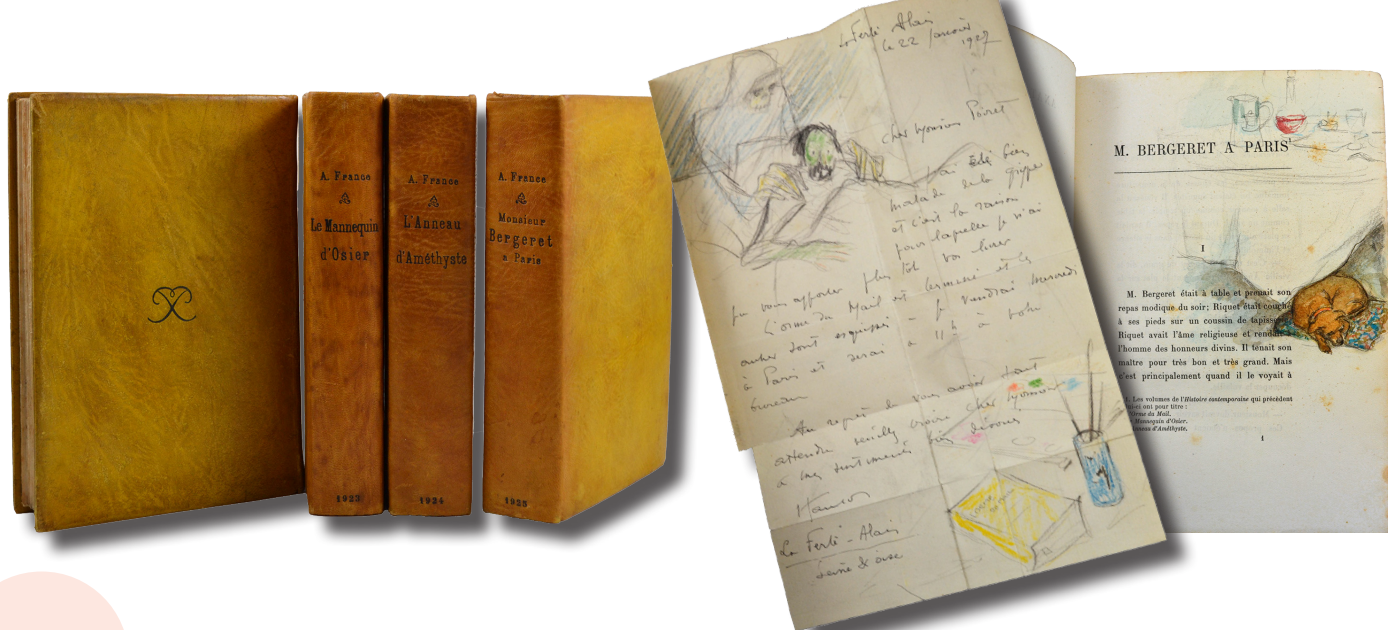 A. France
Le Mannequin
d'Osier
1923
A. France
L'Anneau
d'Améthyste
1924
A. France
Monsieur
Bergeret
a Paris
1925
La Ferté Alais
le 22 janvier 1927
cher Monsieur Poiret
j'ai été bien
malade de la grippe
et c'est la raison
pour laquelle je n'ai
pu vous apporter plus tôt vos livres
L'orme du Mail est terminé et les
autres sont esquissés - je viendrai mercredi
à Paris et serai à 11h à votre
bureau
Au regret de vous avoir fait
attendre veuillez croire cher Monsieur
à mes sentiments bien dévoués
La Ferté-Alais
Seine & oise
M. BERGERET A PARIS¹
I
M. Bergeret était à table et prenait son
repas modique du soir; Riquet était couché
à ses pieds sur un coussin de tapisserie.
Riquet avait l'âme religieuse et rendait à
l'homme des honneurs divins. Il tenait son
maître pour très bon et très grand. Mais
c'est principalement quand il le voyait à
1. Les volumes de l'Histoire contemporaine qui précèdent
celui-ci ont pour titre :
L'Orme du Mail.
Le Mannequin d'Osier.
L'Anneau d'Améthyste.
1